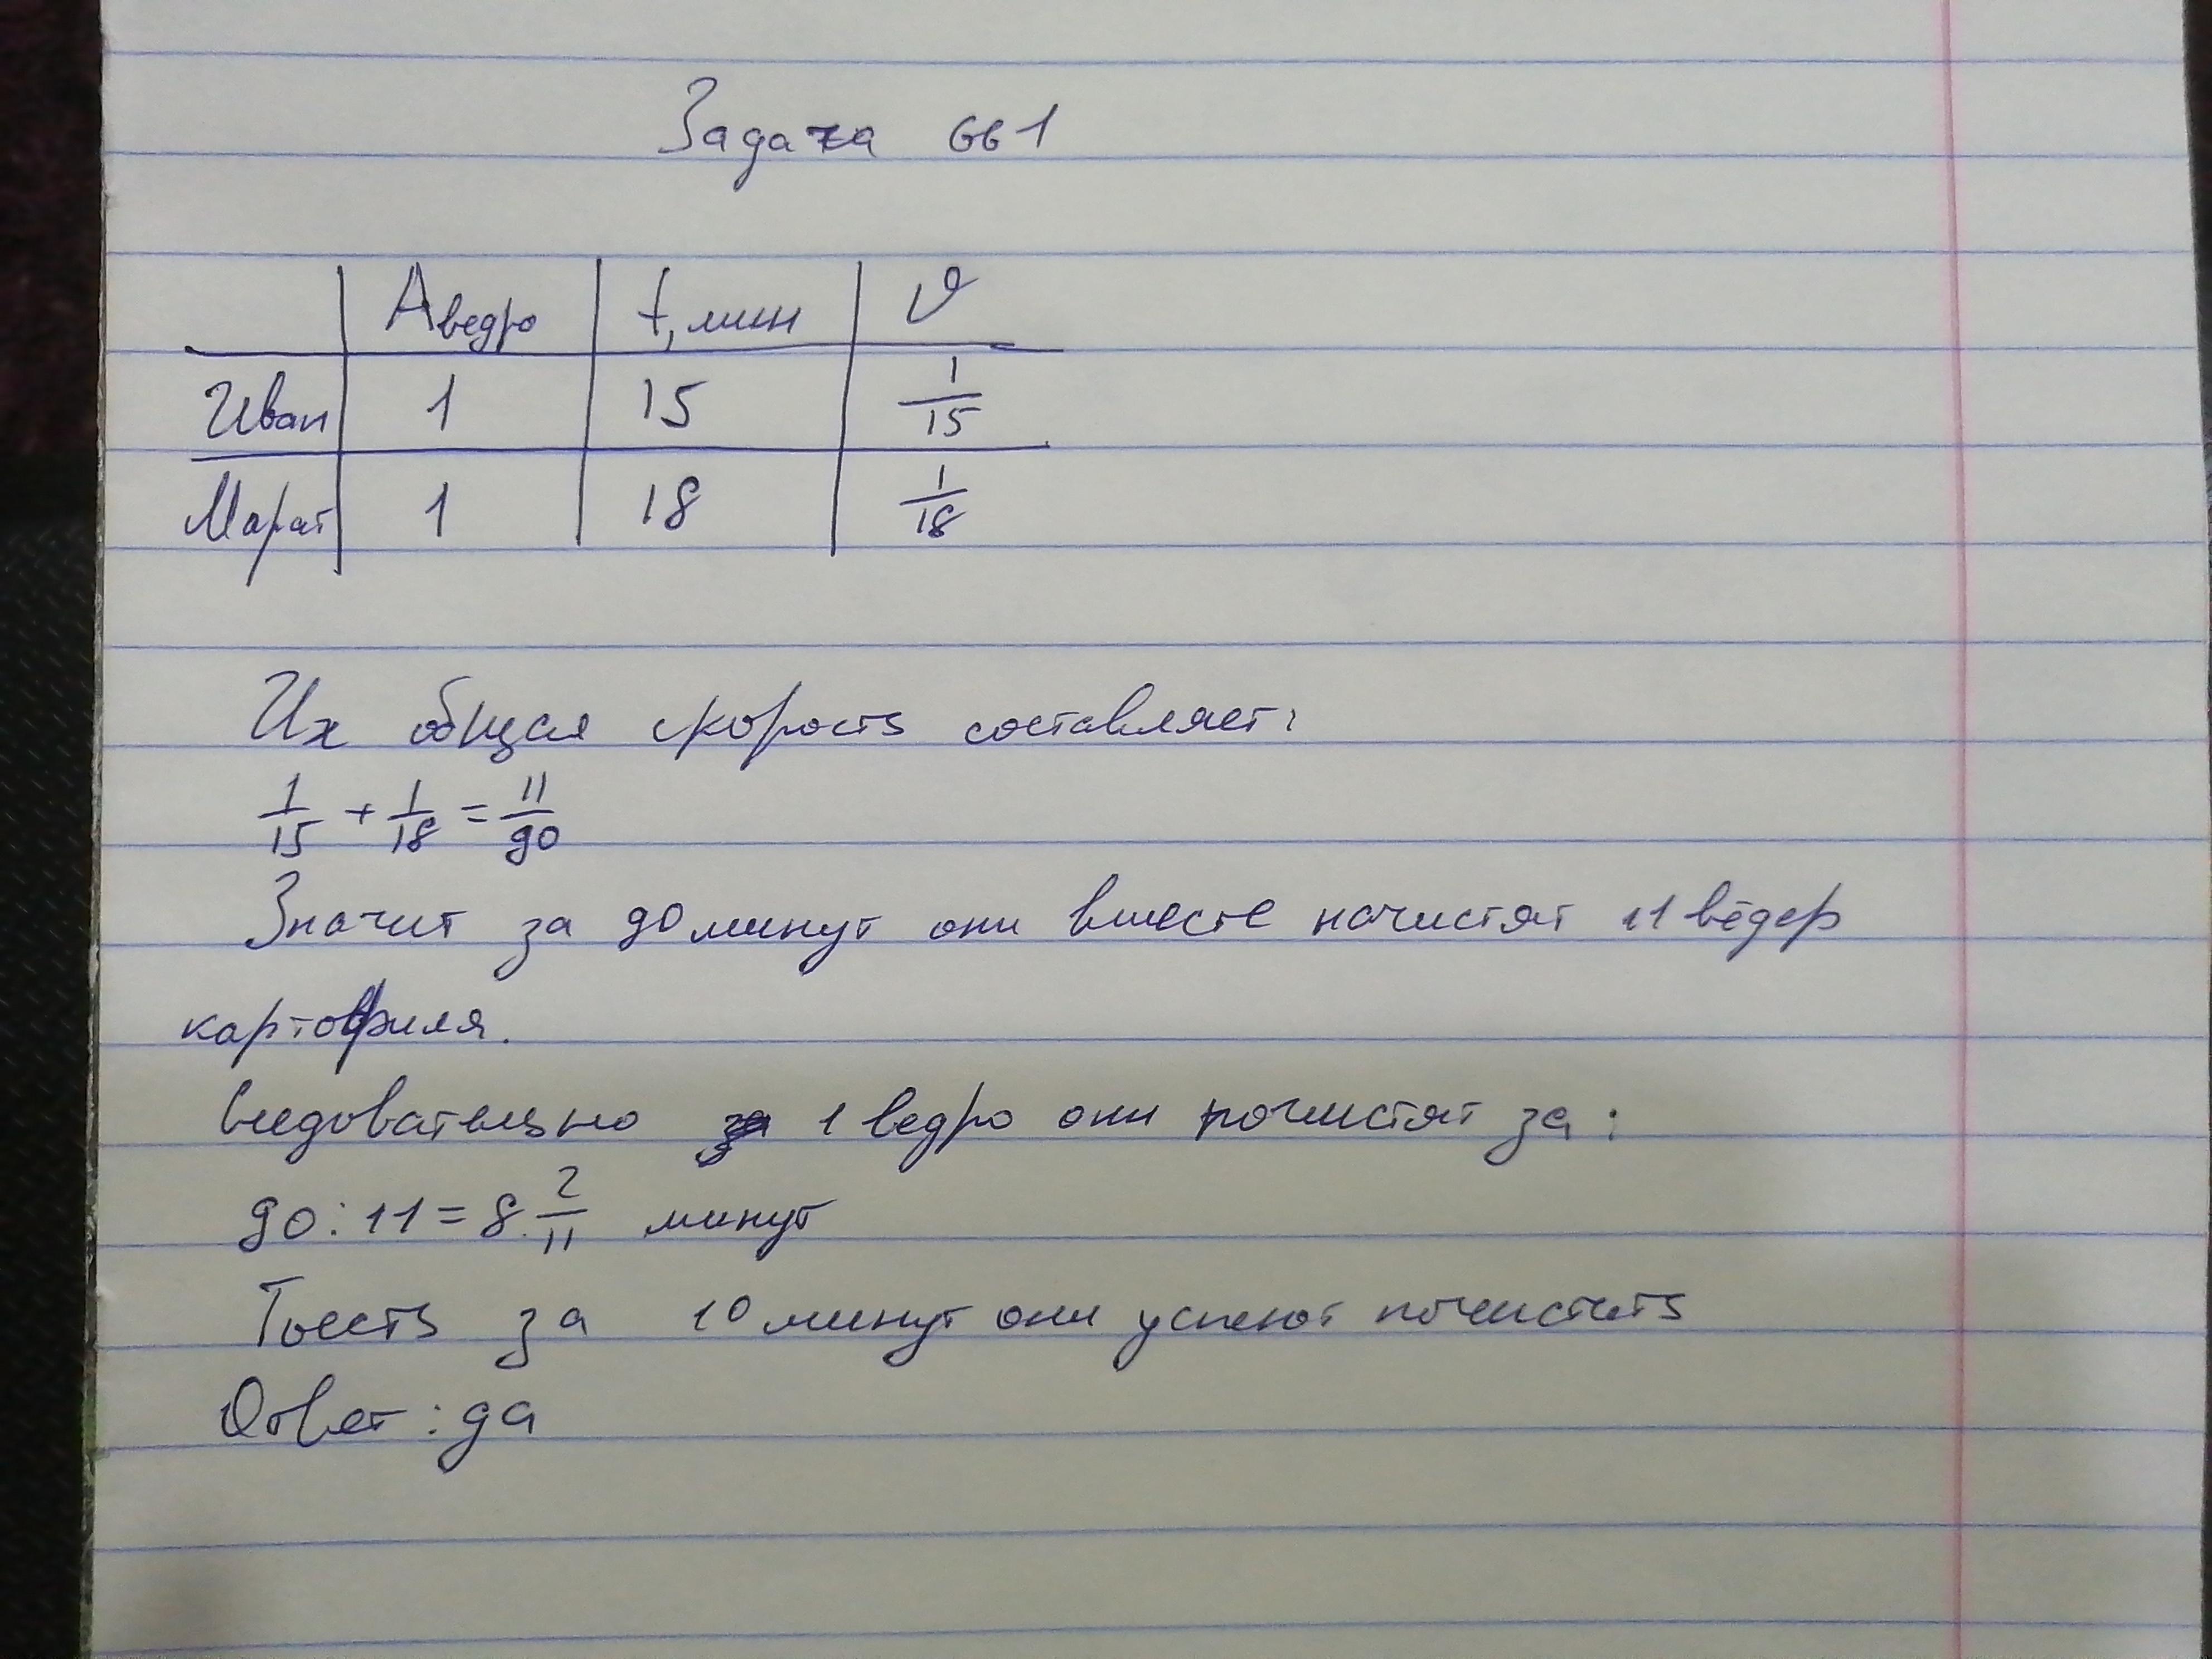 Задача 661
Аведро t, мин υ
Иван 1 15 1/15
Марат 1 18 1/18
Их общая скорость составляет:
1/15 + 1/18 = 11/90
Значит за 90 минут они вместе начистят 11 вёдер
картофиля.
Следовательно 1 ведро они почистят за:
90 : 11 = 8 2/11 минут
Тоесть за 10 минут они успеют почистить
Ответ: да